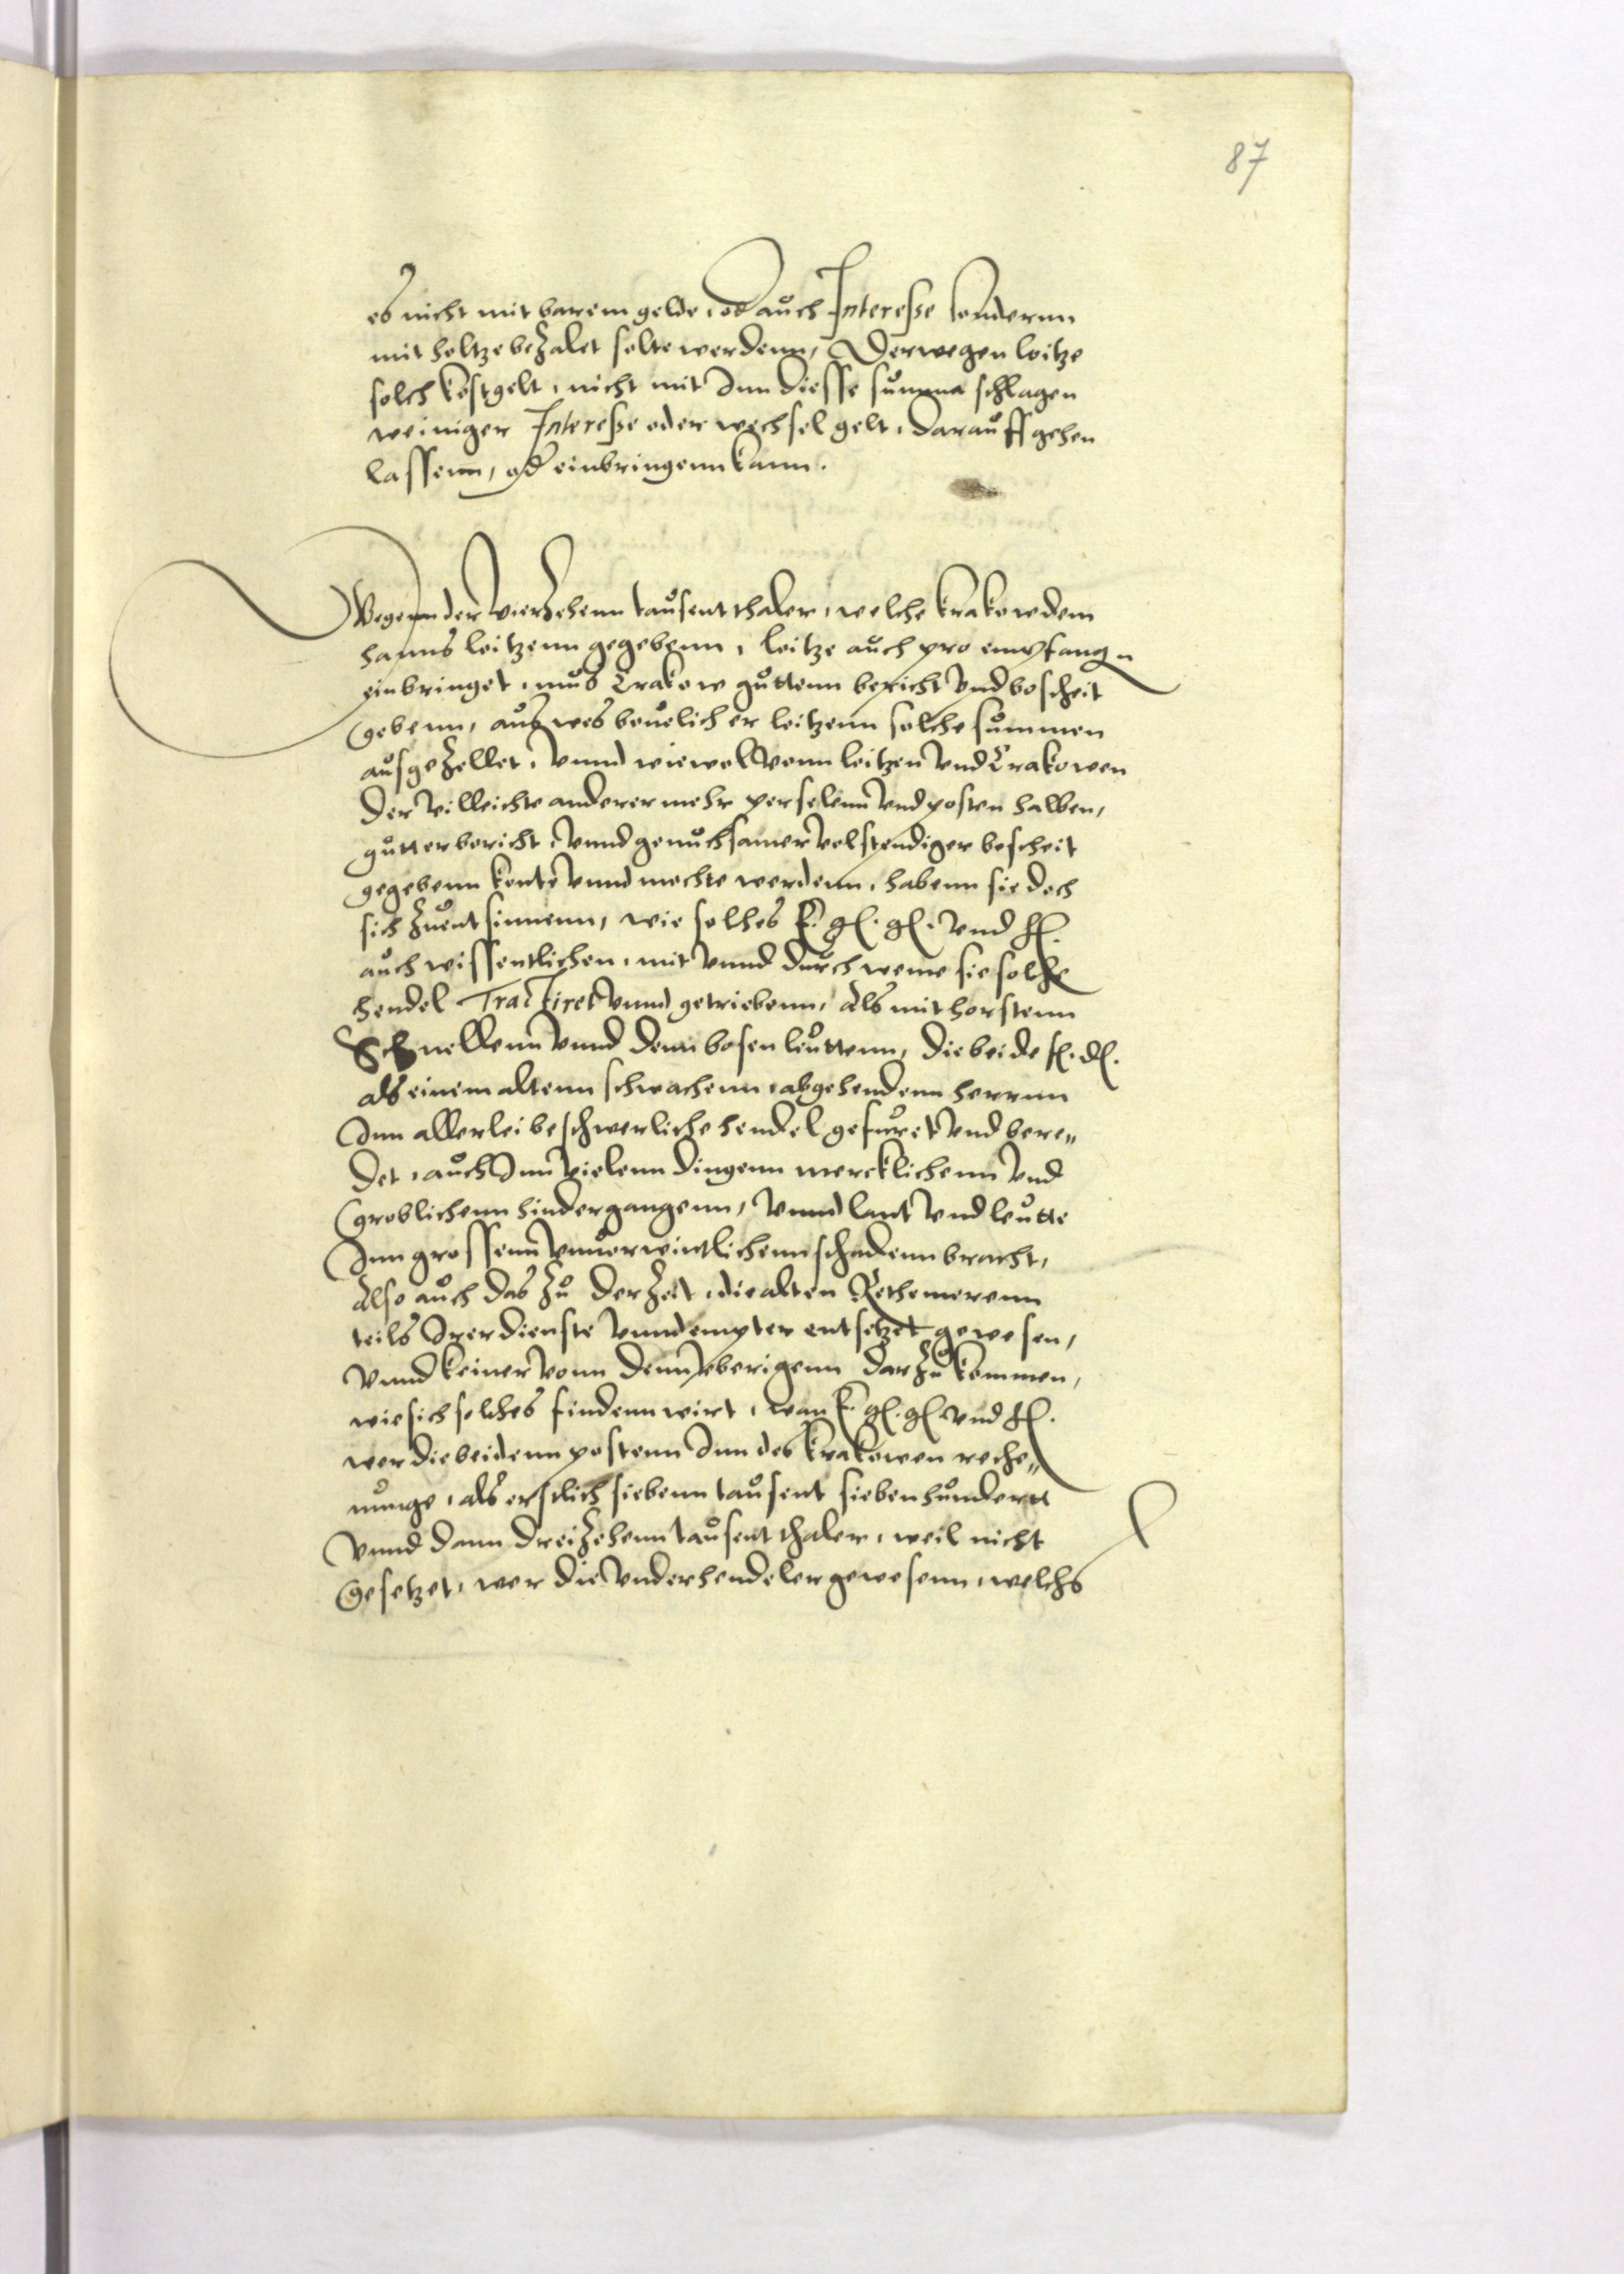 87
es nicht mit barem gelde, od auch Interesse sondernn
mit holtze bezalet solte werdenn, Derwegen loitze
solch kostgelt, nicht mit Inn diesse summa schlagen
weiniger Interesse oder wechsel gelt, darauff gehen
lassenn, od einbringenn kann.
Wegenn der vierzehenn tausent thaler, welche krakow dem
hanns loitzenn gegebenn, loitze auch pro empfangn
einbringet, mus Crakow guttenn bericht vnd bescheit
gebenn, aus wes beuelich er loitzenn solche summen
ausgezellet, vnnd wiewol vonn loitzen vnd Crakowen
der villeichte anderer mehr perselenn vnd posten halben,
gutter bericht, vnnd genuchsamer volstendiger bescheit
gegebenn konte vnnd mochte werdenn, habenn sie doch
sich zuentsinnenn, wie solches E. g. g. vnd f.
auch wissentlichen, mit vnnd durch weme sie solche
hendel Tractiret vnnd getriebenn, Als mit horstenn
Schnellenn vnnd denn bosen leuttenn, die beide f. d.
als einem altenn schwachenn, abgehendenn herrnn
Inn allerlei beschwerliche hendel gefuret vnd bere„
det, auch Inn vielenn dingenn mercklichenn vnd
groblichenn hindergangenn, vnnd lant vnd leutte
Inn grossenn vnuorwintlichenn schadenn bracht,
Also auch das zu der zeit, die alten Rethe merenn
teils Irer dienste vnnd empter entsetzet gewesen,
vnnd keiner vonn denn vberigenn darzu kommen,
wie sich solches findenn wirt, wan E. g. g. vnd f.
wer die beidenn postenn Inn des krakowen reche„
nunge, als erstlich siebenn tausent siebenhundertt
vnnd dann dreizehenn tausent thaler, weil nicht
gesetzet, wer die vnderhendeler gewesenn, welchs